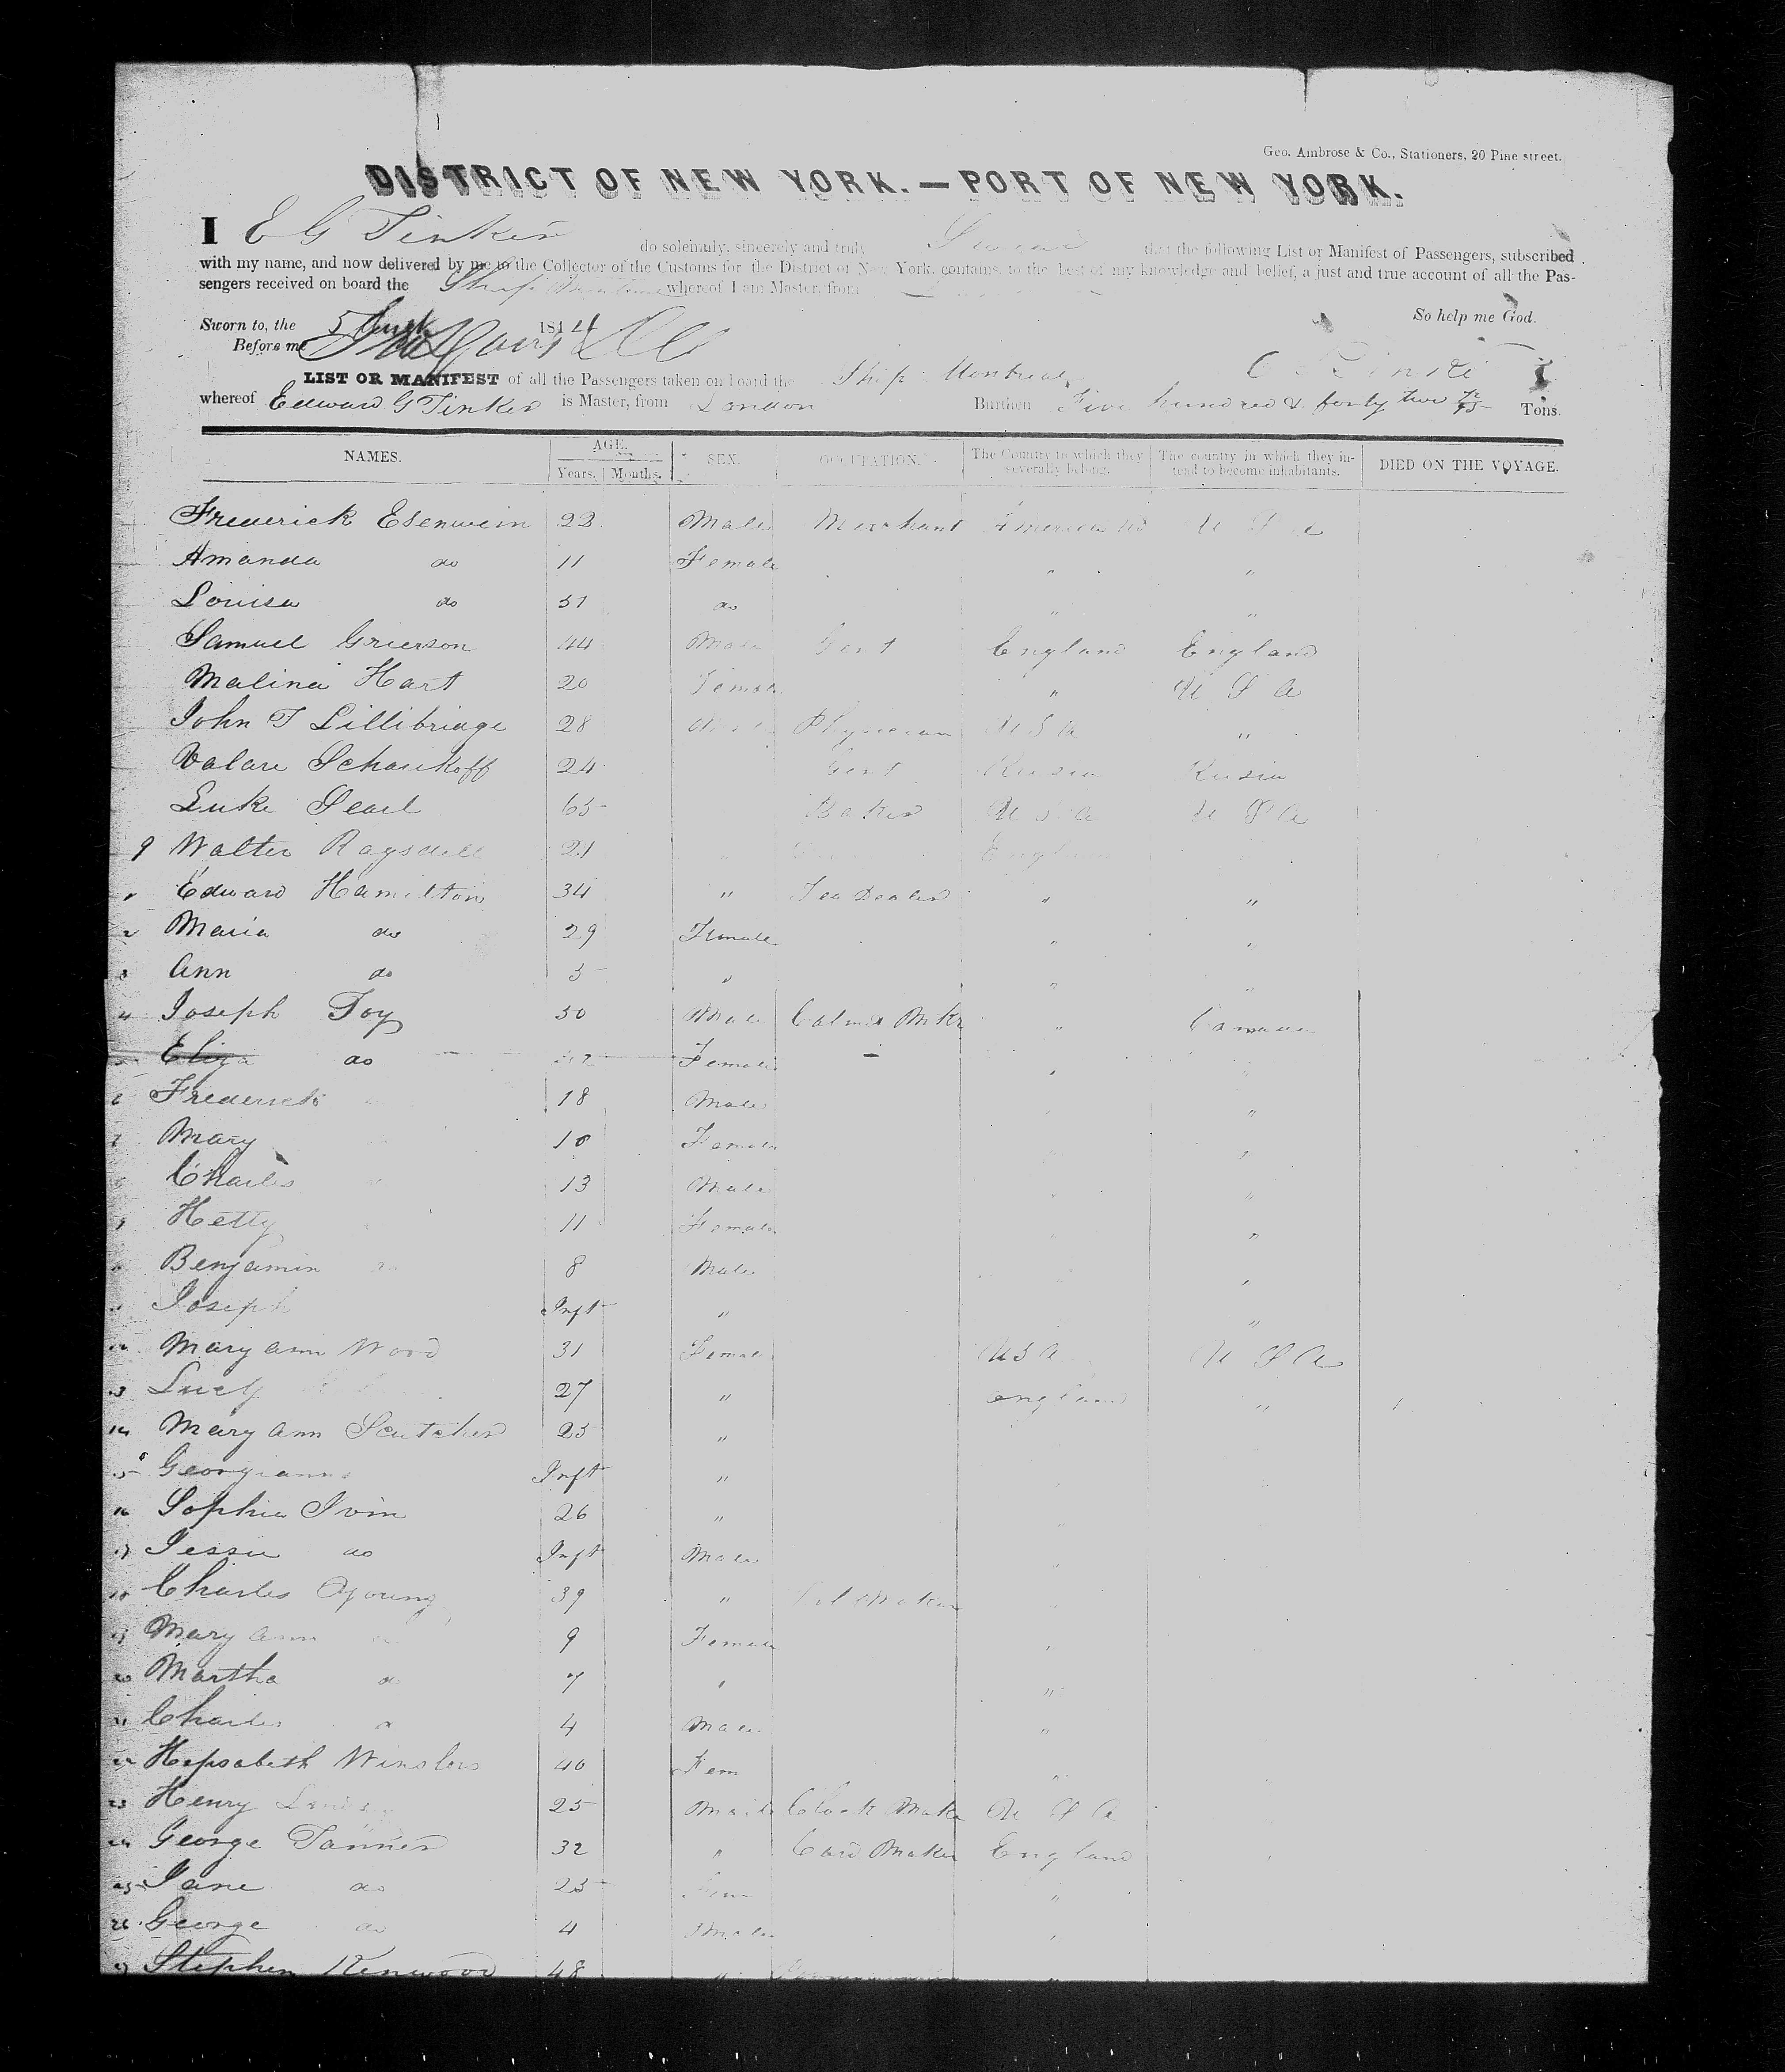 Geo. Ambrose & Co., Stationers, 20 Pine street.
DISTRICT OF NEW YORK.—PORT OF NEW YORK.
I E G Tinker do solemnly, sincerely and truly Swear that the following List or Manifest of Passengers, subscribed
with my name, and now delivered by me to the Collector of the Customs for the District of New York, contains, to the best of my knowledge and belief, a just and true account of all the Pas-
sengers received on board the Ship whereof I am Master, from
Sworn to, the 5 184 So help me God.
Before me
LIST OR MANIFEST of all the Passengers taken on board the Ship Montreal
whereof Edward G Tinker is Master, from London Burthen Five hundred & forty two Tons.
NAMES. AGE. SEX. OCCUPATION. The Country to which they severally belong. The country in which they intend to become inhabitants. DIED ON THE VOYAGE.
Years. Months.
Frederick Esenwein 22 Male Merchant America U S A
Amanda do 11 Female " "
Louisa do 31 do " "
Samuel Grierson 44 Male Gent England England
Malina Hart 20 Female " U S A
John T Lillibridge 28 Physician U S A "
Valare Schaukoff 24 Gent Rusia Rusia
Luke Searl 65 Baker U S A U S A
9 Walter Ragsdell 21 England
Edward Hamilton 34 " Tea Dealer " "
2 Maria do 29 Female " "
3 Ann do 5 " " "
4 Joseph Toy 50 Male Cabinet Mkr " Canada
Eliza do Female " "
6 Frederick 18 Male " "
7 Mary 10 Female " "
Charles 13 Male " "
9 Hetty 11 Female " "
Benjamin 8 Male "
Joseph Inft " "
Mary ann Wood 31 Female U S A U S A
13 Lucy 27 " England "
14 Mary ann Scutcher 25 "
15 Georgianna Inft "
16 Sophia Ivin 26 "
17 Jessee do Inft Male
18 Charles Young 39 " Maker
19 Mary ann 9 Female "
20 Martha do 7 " "
21 Charles 4 Male "
22 Hepsabeth Winslow 40 Fem "
23 Henry 25 Male Clock Make U S A
24 George Tanner 32 " Card Maker England
25 Jane do 25 Fem "
26 George do 4 Male "
27 Stephen Kenwood 48 " "